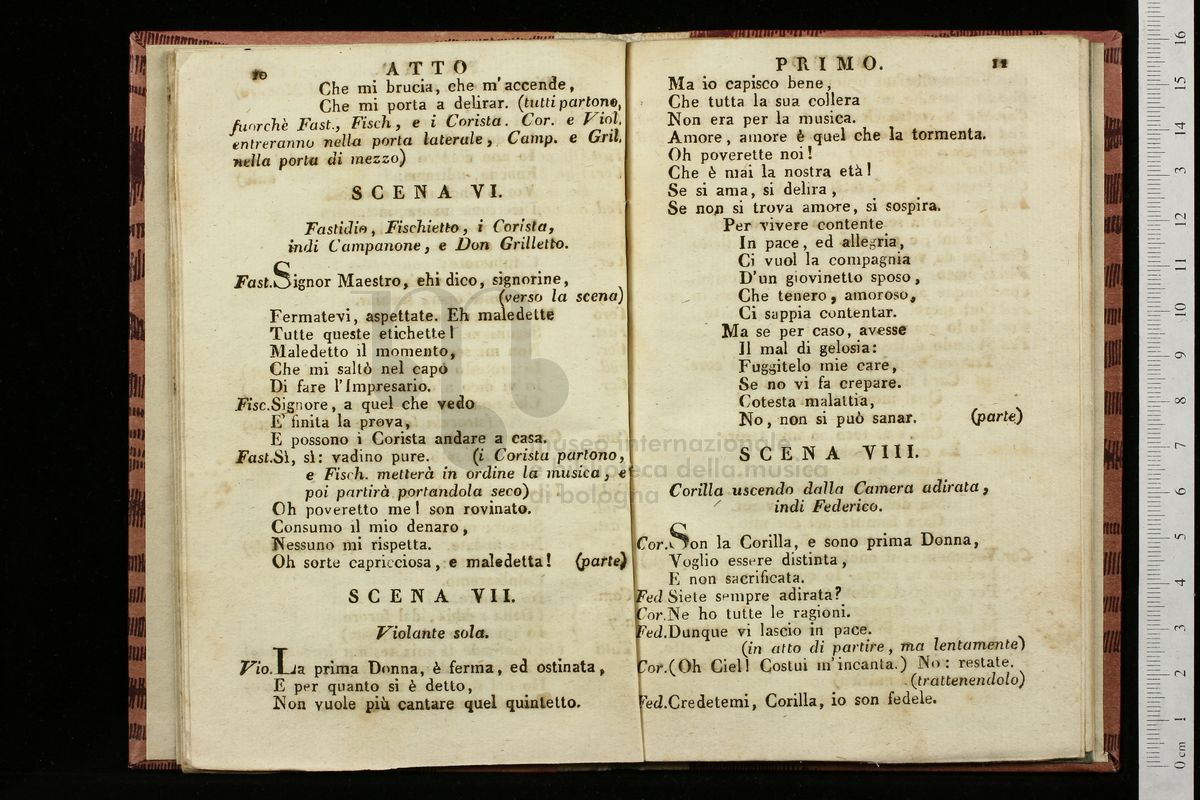 10
ATTO
Che mi brucia, che m'accende,
Che mi porta a delirar. (tutti partono,
fuorchè Fast., Fisch, e i Corista. Cor. e Viol.
entreranno nella porta laterale, Camp. e Gril.
nella porta di mezzo)
SCENA VI.
Fastidio, Fischietto, i Corista,
indi Campanone, e Don Grilletto.
Fast. Signor Maestro, ehi dico, signorine,
(verso la scena)
Fermatevi, aspettate. Eh maledette
Tutte queste etichette!
Maledetto il momento,
Che mi saltò nel capo
Di fare l'Impresario.
Fisc. Signore, a quel che vedo
E' finita la prova,
E possono i Corista andare a casa.
Fast. Sì, sì: vadino pure. (i Corista partono,
e Fisch. metterà in ordine la musica, e
poi partirà portandola seco)
Oh poveretto me! son rovinato.
Consumo il mio denaro,
Nessuno mi rispetta.
Oh sorte capricciosa, e maledetta! (parte)
SCENA VII.
Violante sola.
Vio. La prima Donna, è ferma, ed ostinata,
E per quanto si è detto,
Non vuole più cantare quel quintetto.
PRIMO.
11
Ma io capisco bene,
Che tutta la sua collera
Non era per la musica.
Amore, amore è quel che la tormenta.
Oh poverette noi!
Che è mai la nostra età!
Se si ama, si delira,
Se non si trova amore, si sospira.
Per vivere contente
In pace, ed allegria,
Ci vuol la compagnia
D'un giovinetto sposo,
Che tenero, amoroso,
Ci sappia contentar.
Ma se per caso, avesse
Il mal di gelosia:
Fuggitelo mie care,
Se no vi fa crepare.
Cotesta malattia,
No, non si può sanar. (parte)
SCENA VIII.
Corilla uscendo dalla Camera adirata,
indi Federico.
Cor. Son la Corilla, e sono prima Donna,
Voglio essere distinta,
E non sacrificata.
Fed Siete sempre adirata?
Cor. Ne ho tutte le ragioni.
Fed. Dunque vi lascio in pace.
(in atto di partire, ma lentamente)
Cor. (Oh Ciel! Costui m'incanta.) No: restate.
(trattenendolo)
Fed. Credetemi, Corilla, io son fedele.
museo internazionale
e biblioteca della musica
di bologna
0 cm 1 2 3 4 5 6 7 8 9 10 11 12 13 14 15 16